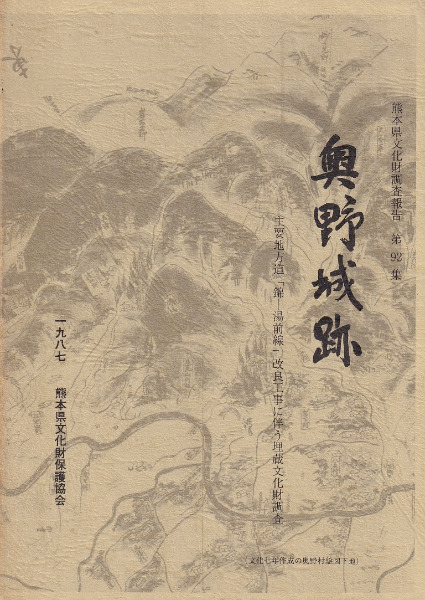 熊本県文化財調査報告 第92集
奥野城跡
主要地方道「錦 湯前線」改良工事に伴う埋蔵文化財調査
一九八七 熊本県文化財保護協会
(文化七年作成の奥野村絵図下地)